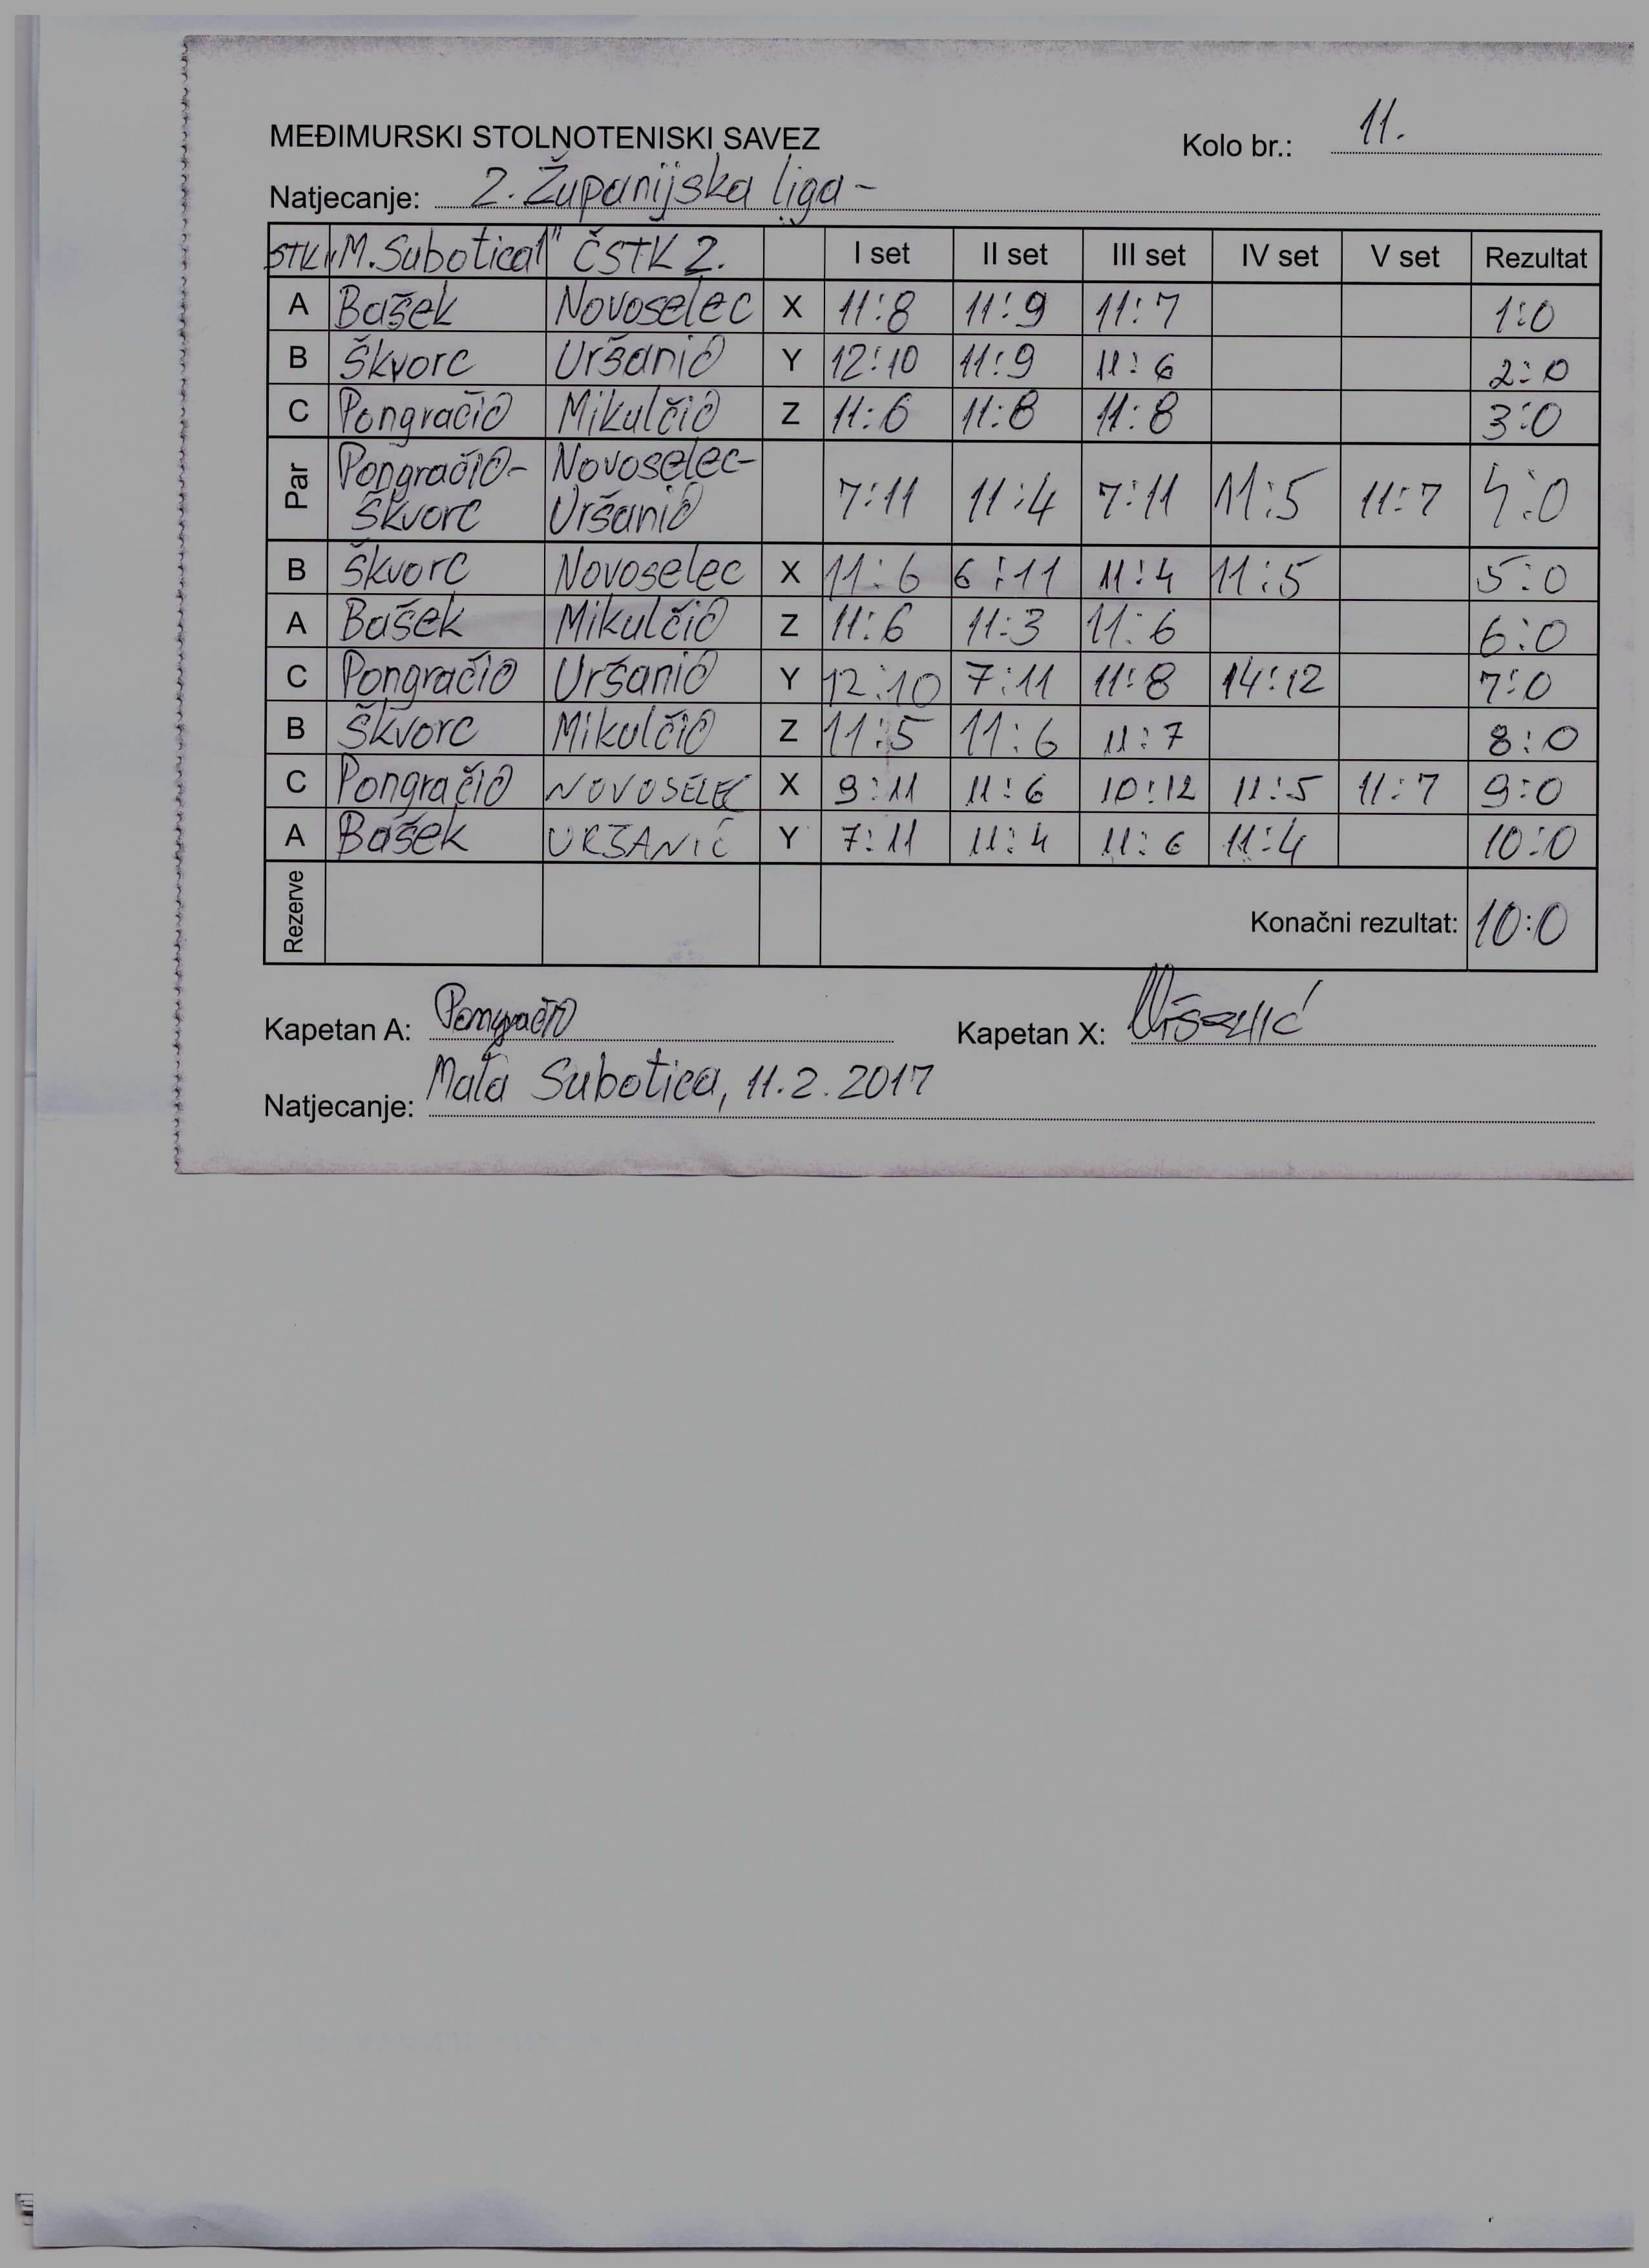 MEĐIMURSKI STOLNOTENISKI SAVEZ
Kolo br.: 11.
Natjecanje: 2. Županijska liga -
STK „M. Subotica" ČSTK 2. I set II set III set IV set V set Rezultat
A Bašek Novoselec X 11:8 11:9 11:7 1:0
B Škvorc Uršanić Y 12:10 11:9 11:6 2:0
C Pongračić Mikulčić Z 11:6 11:8 11:8 3:0
Par Pongračić- Novoselec- 7:11 11:4 7:11 11:5 11:7 4:0
Škvorc Uršanić
B Škvorc Novoselec X 11:6 6:11 11:4 11:5 5:0
A Bašek Mikulčić Z 11:6 11:3 11:6 6:0
C Pongračić Uršanić Y 12:10 7:11 11:8 14:12 7:0
B Škvorc Mikulčić Z 11:5 11:6 11:7 8:0
C Pongračić NOVOSELEC X 9:11 11:6 10:12 11:5 11:7 9:0
A Bašek URŠANIĆ Y 7:11 11:4 11:6 11:4 10:0
Rezerve Konačni rezultat: 10:0
Kapetan A: Pongračić Kapetan X: Uršanić
Natjecanje: Mala Subotica, 11.2.2017